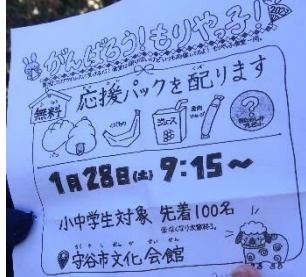 がんばろう!もりやっ子!
2023
無料
応援パックを配ります
ジュース
?
1月28日(土) 9:15〜
小中学生対象 先着100名
守谷市文化会館